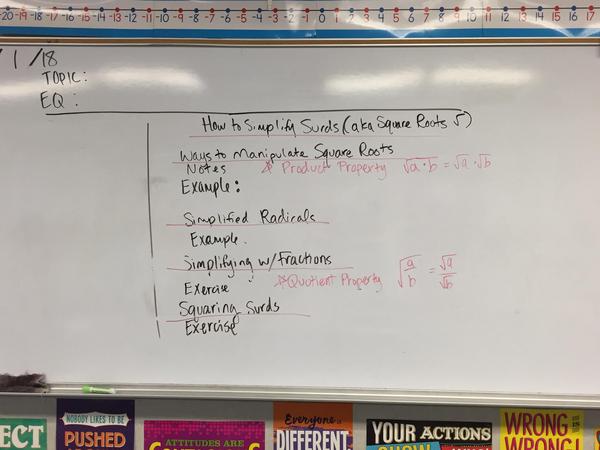 -20 -19 -18 -17 -16 -15 -14 -13 -12 -11 -10 -9 -8 -7 -6 -5 -4 -3 -2 -1 0 1 2 3 4 5 6 7 8 9 10 11 12 13 14 15 16 17
/ 1 /18
TOPIC:
EQ :
How to Simplify Surds (aka Square Roots √)
Ways to Manipulate Square Roots
Notes ☆ Product Property √a·b = √a · √b
Example:
Simplified Radicals
Example.
Simplifying w/Fractions
Exercise ☆Quotient Property √a/b = √a/√b
Squaring Surds
Exercise
ECT
NOBODY LIKES TO BE
PUSHED
ATTITUDES ARE
Everyone is
DIFFERENT
YOUR ACTIONS
WRONG IS
WRONG